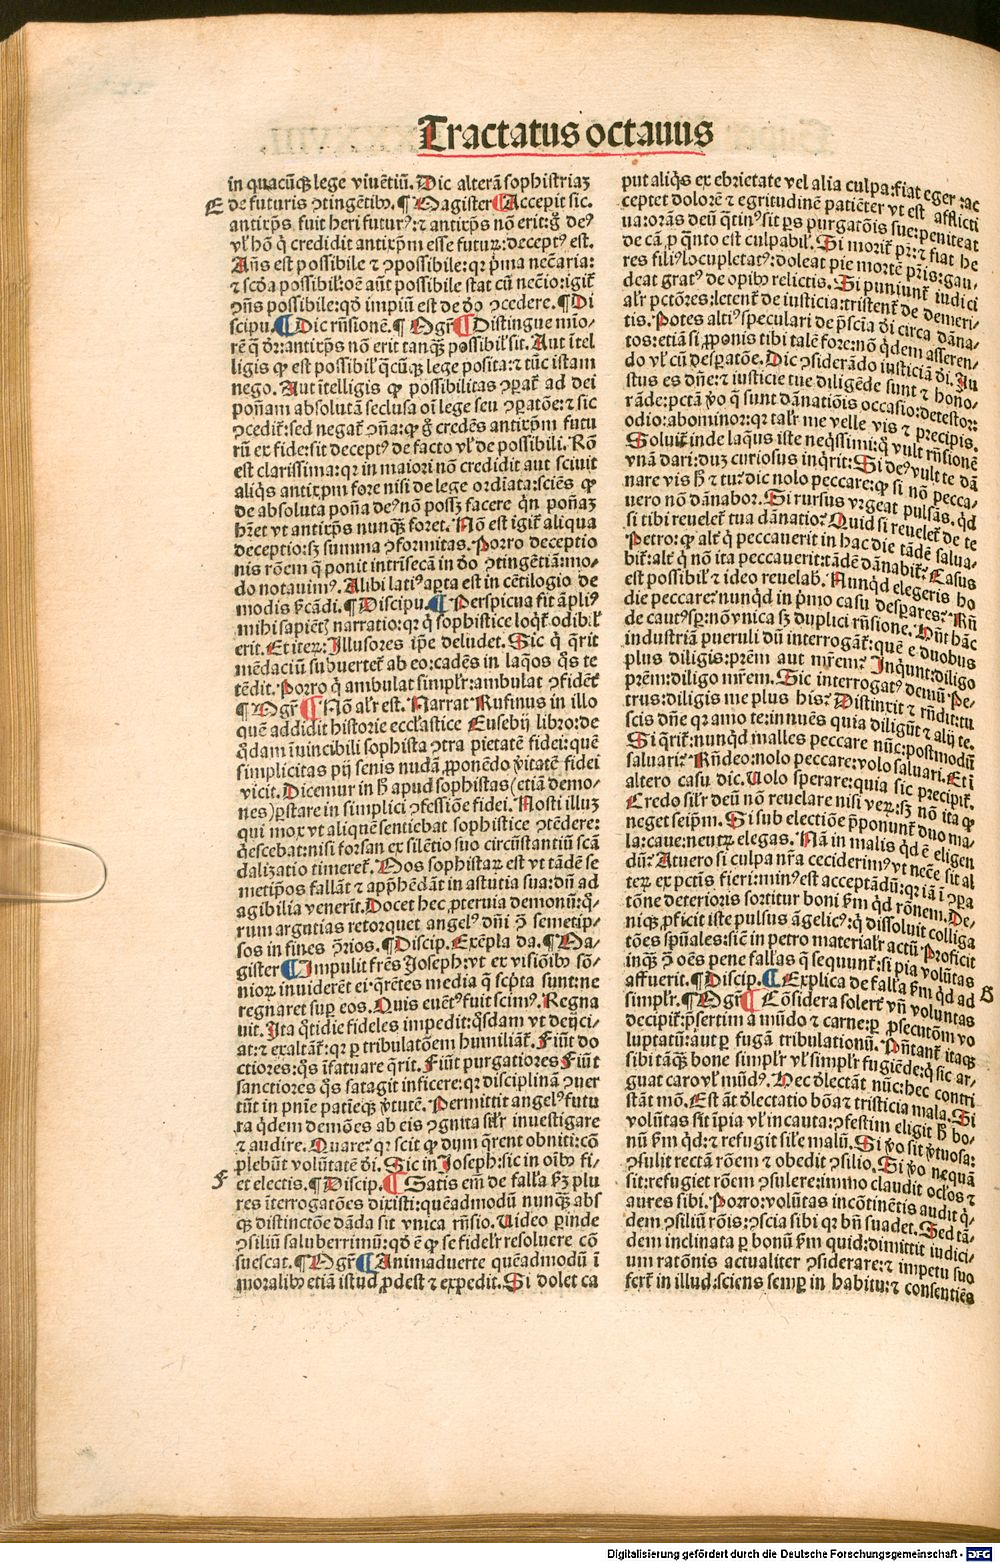 Tractatus octauus
in quacũqꝫ lege viuẽtiũ. Dic alterã sophistriaꝫ
E
de futuris ↄ̨tingẽtibꝰ. ¶ Magister Accepit sic.
antixp̃s fuit heri futurꝰ: ⁊ antixp̃s nõ erit: g̃ deꝰ
vl̓ hõ q̓ credidit antixp̃m esse futuꝝ: deceptꝰ est.
Añs est possibile ⁊ ↄpossibile: qꝛ p̓ma necc̃aria:
⁊ scd̓a possibil̓: oẽ aũt possibile stat cũ necc̃io: igit̓
ↄñs possibile: qd̓ impiũ est de d̓o ↄcedere. ¶ Di
scipu. Dic rñsionẽ. ¶ Mgr̃ Distingue mio-
rẽ q̃ d̓r: antixp̃s nõ erit tanqꝫ possibil̓ sit. Aut ĩtel
ligis ꝙ est possibil̓ q̃cũqꝫ lege posita: ⁊ tũc istam
nego. Aut ĩtelligis ꝙ possibilitas ↄꝑat̓ ad dei
poñam absolutã seclusa oĩ lege seu ↄꝑatõe: ⁊ sic
ↄcedit̓: sed negat̓ ↄña: ꝙ g̃ credẽs antixp̃m futu
rũ ex fide: sit deceptꝰ de facto vl̓ de possibili. Rõ
est clarissima: qꝛ in maiori nõ credidit aut sciuit
aliq̓s antixp̃m fore nisi de lege ordĩata: sciẽs ꝙ
de absoluta poña deꝰ nõ possꝫ facere q̓n poñaꝫ
hr̃et vt antixp̃s nunqꝫ foret. Nõ est igit̓ aliqua
deceptio: sꝫ summa ↄformitas. Porro deceptio
nis rõem q̃ ponit intrĩsecã in d̓o ↄtingẽtiã: mo-
do notauimꝰ. Alibi latiꝰ aꝑta est in cẽtilogio de
modis v̓cãdi. ¶ Discipu. Perspicua fit ãpliꝰ
mihi sapiẽtꝭ narratio: qꝛ q̓ sophistice loqt̓ odibil̓
erit. Et iteꝝ: Illusores ip̃e deludet. Sic q̓ q̃rit
mẽdaciũ subuertet̓ ab eo: cadẽs in laq̓os q̓s te
tẽdit. Porro q̓ ambulat simpl̓r: ambulat ↄfidẽt̓
¶ Mgr̃ Nõ al̓r est. Narrat Rufinus in illo
quẽ addidit historie eccl̓astice Eusebij libro: de
q̓dam ĩuincibili sophista ↄtra pietatẽ fidei: quẽ
simplicitas pij senis nudã ꝓponẽdo v̓itatẽ fidei
vicit. Dicemur in h̓ apud sophistas (etiã demo-
nes) ꝑstare in simplici ↄfessiõe fidei. Nosti illuꝫ
qui mox vt aliquẽ sentiebat sophistice ↄtẽdere:
q̓escebat: nisi forsan ex silẽtio suo circũstantiũ scã
dalizatio timeret̓. Mos sophistaꝝ est vt tãdẽ se
metip̃os fallãt ⁊ app̓hẽdãt in astutia sua: dũ ad
agibilia venerĩt. Docet hec ꝓteruia demonũ: q̓-
rum argutias retorquet angelꝰ dñi ↄ̃ semetip-
sos in fines ↄ̃rios. ¶ Discip. Exẽpla da. ¶ Ma-
gister Impulit fr̃es Joseph: vt ex visiõibꝰ sõ-
nioꝝ inuiderẽt ei: q̃rẽtes media q̃ scp̓ta sunt: ne
regnaret suꝑ eos. Quis euẽtꝰ fuit scimꝰ. Regna
uit. Ita q̓tidie fideles impedit: q̓sdam vt deijci-
at: ⁊ exaltãt̓: qꝛ ꝑ tribulatõem humiliãt̓. Fiũt do
ctiores: q̓s ĩfatuare q̃rit. Fiũt purgatiores Fiũt
sanctiores q̓s satagit inficere: qꝛ disciplinã ↄuer
tũt in pnĩe patĩeqꝫ v̓tutẽ. Permittit angelꝰ futu
ra q̓dem demões ab eis ↄgnita sil̓r inuestigare
⁊ audire. Quare? qꝛ scit ꝙ dum q̃rent obniti: cõ
plebũt volũtatẽ d̓i. Sic in Joseph: sic in oĩbꝰ fi-
F
et electis. ¶ Discip. Satis em̃ de fall̓a v̓ꝫ plu
res ĩterrogatões dixisti: quẽadmodũ nunqꝫ abs
qꝫ distinctõe dãda sit vnica rñsio. Uideo ꝑinde
ↄsiliũ saluberrimũ: qd̓ ẽ ꝙ se fidel̓r resoluere cõ
suescat. ¶ Mgr̃ Animaduerte quẽadmodũ ĩ
moralibꝰ etiã istud ꝓdest ⁊ expedit. Si dolet ca
put aliq̓s ex ebrietate vel alia culpa: fiat eger: ac
ceptet dolorẽ ⁊ egritudinẽ patiẽter vt est afflicti
ua: orãs deũ q̓tinꝰ sit ꝑs purgatõis sue: peniteat
de cã ꝓ q̃nto est culpabil̓. Si morit̓ pr̃: ⁊ fiat he
res filiꝰ locupletatꝰ: doleat pie mortẽ pr̃is: gau-
deat gratꝰ de opibꝰ relictis. Si puniunt̓ iudici
al̓r pctõres: letent̓ de iusticia: tristent̓ de demeri-
tis. Potes altiꝰ speculari de p̓scĩa d̓i circa dãna-
tos: etiã si ꝓponis tibi talẽ fore: nõ q̓dem asseren-
do vl̓ cũ desꝑatõe. Dic ↄsiderãdo iusticiã d̓i. Ju
stus es dñe: ⁊ iusticie tue diligẽde sunt ⁊ hono-
rãde: pctã v̓o q̃ sunt dãnatiõis occasio: detestor:
odio: abominor: qꝛ tal̓r me velle vis ⁊ precipis.
Soluit̓ inde laqueꝰ iste neq̓ssimi: q̓ vult rñsionẽ
vnã dari: duꝫ curiosus inq̓rit: Si deꝰ vult te dã
nare vis h̓ ⁊ tu? dic nolo peccare: ꝙ si nõ pecca-
uero nõ dãnabor. Si rursus vrgeat pulsãs. q̓d
si tibi reuelet̓ tua dãnatio? Quid si reuelet̓ de te
Petro: ꝙ alt̓ q̓ peccauerit in hac die tãdẽ salua-
bit̓: alt̓ q̓ nõ ita peccauerit: tãdẽ dãnabit̓? Casus
est possibil̓ ⁊ ideo reuelab̓. Nunq̓d elegeris ho
die peccare? nunq̓d in p̓mo casu desꝑares? Rñ
de cautꝰ sꝑ: nõ vnica sꝫ duplici rñsione. Dũt hãc
industriã pueruli dũ interrogãt̓: quẽ e duobus
plus diligis: pr̃em aut mr̃em? Inq̓unt: diligo
pr̃em: diligo mr̃em. Sic interrogatꝰ demũ Pe-
trus: diligis me plus his? Distinxit ⁊ rñdit: tu
scis dñe qꝛ amo te: innuẽs quia diligũt ⁊ alij te.
Si q̃rit̓: nunq̓d malles peccare nũc: postmodũ
saluari? Rñdeo: nolo peccare: volo saluari. Et ĩ
altero casu dic. Uolo sperare: quia sic precipit̓.
Credo sil̓r deũ nõ reuelare nisi veꝝ: sꝫ nõ ita ꝙ
neget seip̃m. Si sub electiõe p̃ponunt̓ duo ma-
la: caue: neutꝝ elegas. Nã in malis q̓d ẽ eligen
dũ? At vero si culpa nr̃a ceciderimꝰ vt necc̃e sit al
teꝝ ex pctis fieri: minꝰ est acceptãdũ: qꝛ iã ĩ ↄꝑa
tõne deterioris sortitur boni ẽm q̓d rõnem. De-
niqꝫ ꝓficit iste pulsus ãgelicꝰ: q̓ dissoluit colliga
tões sp̃uales: sicut in petro materialr̃ actũ. Proficit
inqꝫ ↄ̃ oẽs pene fall̓as q̃ sequunt̓: si pia volũtas
affuerit. ¶ Discip. Explica de fall̓a ẽm q̓d ad
G
simpl̓r. ¶ Mgr̃ Cõsidera solert̓ vñ voluntas
decipit̓: p̓sertim a mũdo ⁊ carne: ꝑ ꝓsecutõm vo
luptatũ: aut ꝑ fugã tribulationũ. Pñtant̓ itaqꝫ
sibi tãqꝫ bone simpl̓r vl̓ simpl̓r fugiẽde: q̓ sic ar-
guat caro vl̓ mũdꝰ. Hec d̓lectãt nũc: hec contri
stãt mõ. Est ãt d̓lectatio bõa ⁊ tristicia mala. Si
volũtas sit ĩpia vl̓ incauta: ↄfestim eligit h̓ bo-
nũ ẽm q̓d: ⁊ refugit sil̓e malũ. Si v̓o sit v̓tuosa:
ↄsulit rectã rõem ⁊ obedit ↄsilio. Si v̓o nequã
sit: refugiet rõem ↄsulere: immo claudit ocl̓os ⁊
aures sibi. Porro: volũtas incõtinẽtis audit q̓-
dem ↄsiliũ rõis: ↄscia sibi qꝛ bñ suadet. Sed tã-
dem inclinata ꝑ bonũ ẽm quid: dimittit iudici-
um ratõnis actualiter ↄsiderare: ⁊ impetu suo
fert̓ in illud: sciens semꝑ in habitu: ⁊ consentiẽs
Digitalisierung gefördert durch die Deutsche Forschungsgemeinschaft - DFG